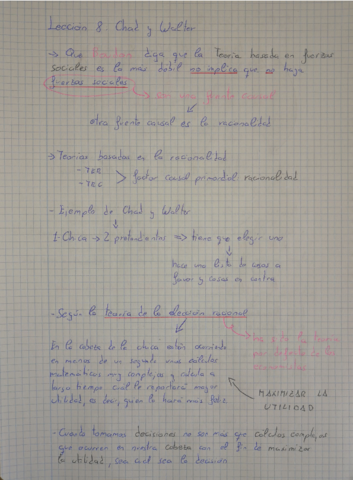 Lección 8 Chad y Walter
→ Que diga que la Teoría basada en fuerzas
sociales es la más débil no implica que no haya
fuerzas sociales
→ son una fuente causal
otra fuente causal es la racionalidad
→ Teorías basadas en la racionalidad
- TER
- TRE > factor causal primordial racionalidad
- Ejemplo de Chad y Walter
1. Chica → 2 pretendientes => tiene que elegir uno
hace una lista de cosas a
favor y cosas en contra
- Según la teoría de la elección racional
En la cabeza de la chica están ocurriendo
en menos de un segundo unos cálculos
matemáticos muy complejos y calcula a
largo tiempo cuál le reportará mayor
utilidad, es decir, quien la hará más feliz
MAXIMIZAR LA
UTILIDAD
- Cuando tomamos decisiones no son más que cálculos complejos
que ocurren en nuestra cabeza con el fin de maximizar
la utilidad, sea cual sea la decisión